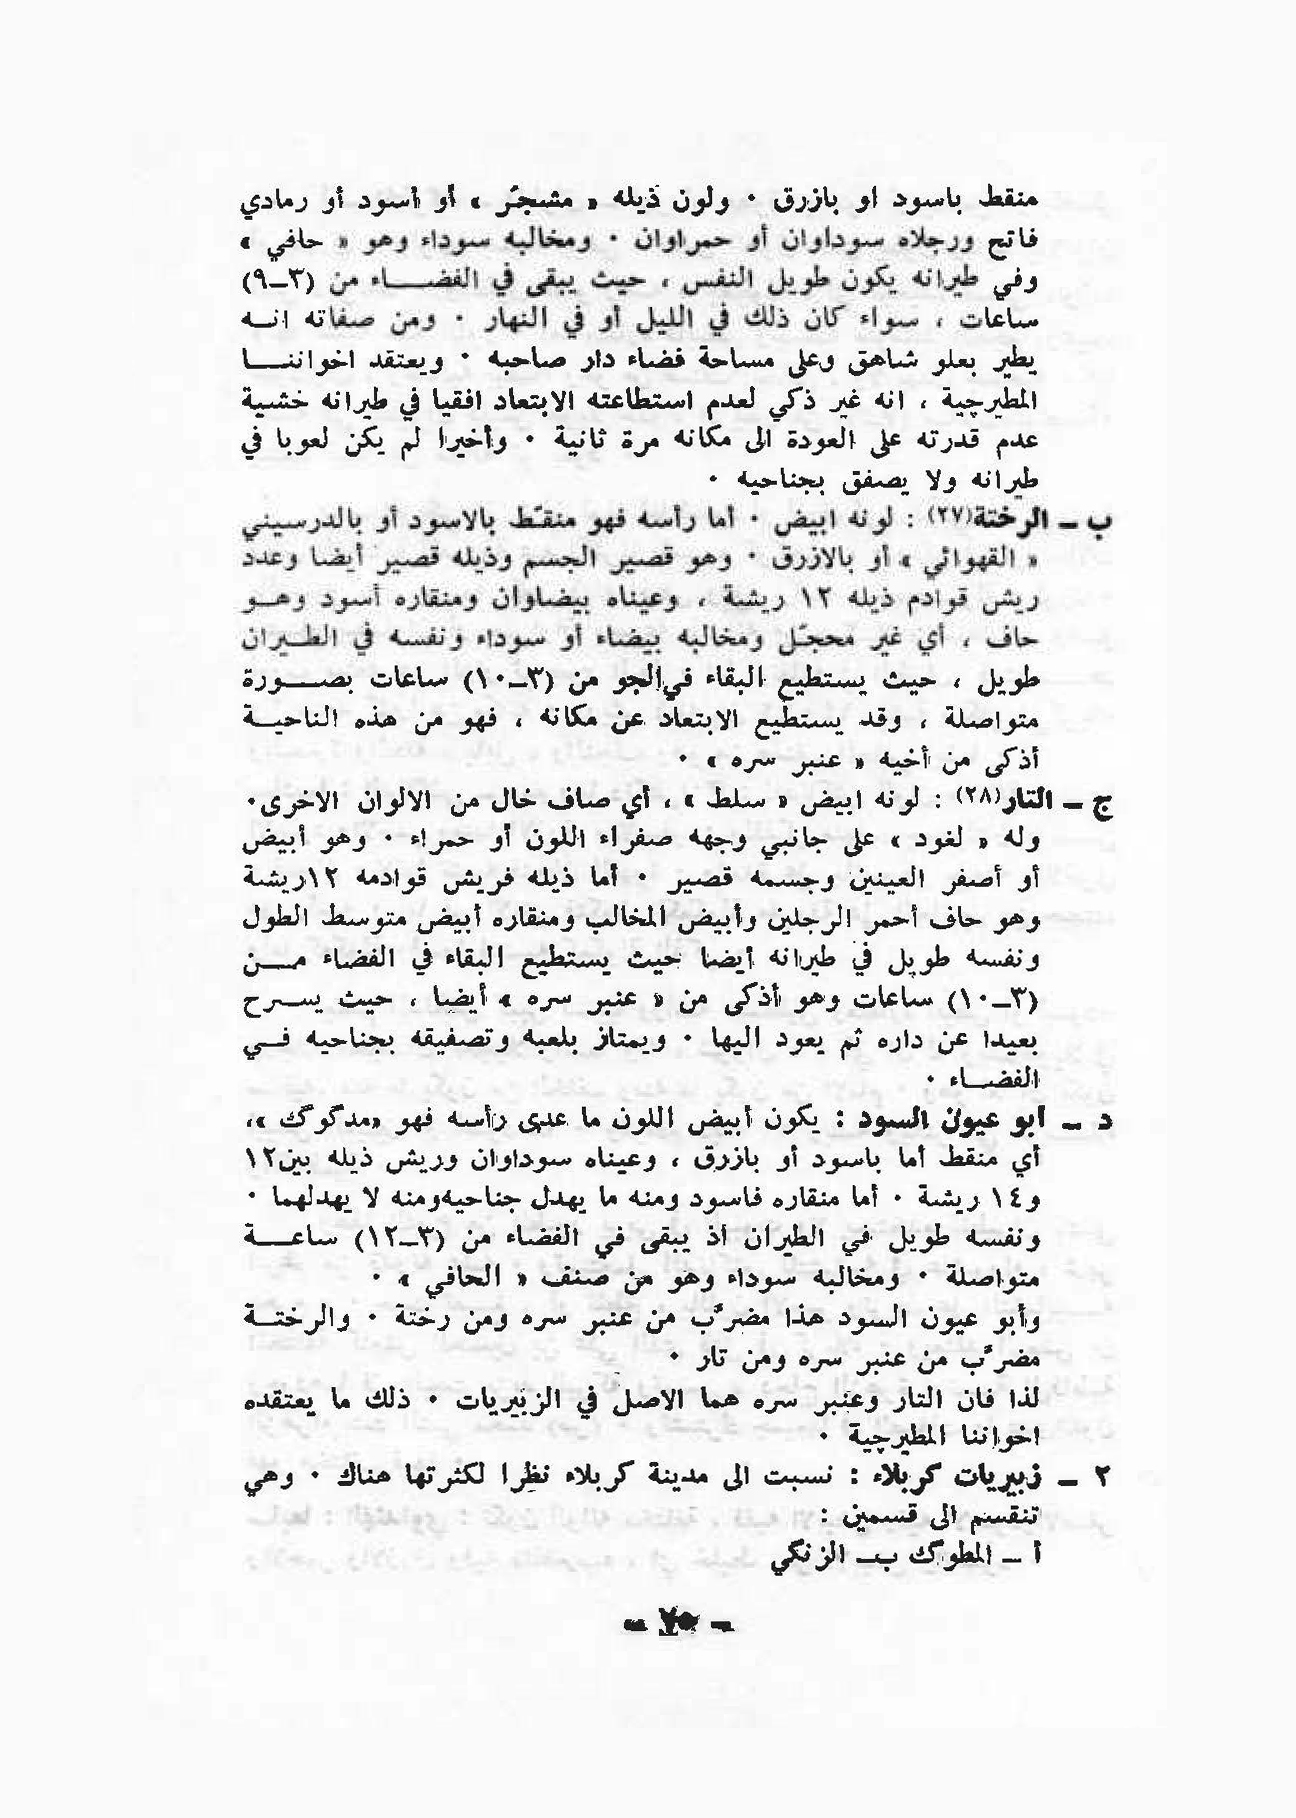 منقط باسود او بازرق ٠ ولون ذيله « مشجّر » أو أسود أو رمادي
فاتح ورجلاه سوداوان أو حمراوان ٠ ومخالبه سوداء وهو « حافي »
وفي طيرانه يكون طويل النفس ، حيث يبقى في الفضـــاء من (٣ــ٩)
ساعات ، سواء كان ذلك في الليل أو في النهار ٠ ومن صفاته انــه
يطير بعلو شاهق وعلى مساحة فضاء دار صاحبه ٠ ويعتقد اخواننـــا
المطيرچية ، انه غير ذكي لعدم استطاعته الابتعاد افقيا في طيرانه خشية
عدم قدرته على العودة الى مكانه مرة ثانية ٠ وأخيرا لم يكن لعوبا في
طيرانه ولا يصفق بجناحيه ٠
ب ــ الرختة(٢٧) : لونه ابيض ٠ أما رأسه فهو منقـّط بالاسود أو بالدرسيني
« القهوائي » أو بالازرق ٠ وهو قصير الجسم وذيله قصير أيضا وعدد
ريش قوادم ذيله ١٢ ريشة ، وعيناه بيضاوان ومنقاره أسود وهــو
حاف ، أي غير محجـّل ومخالبه بيضاء أو سوداء ونفسه في الطـيران
طويل ، حيث يستطيع البقاء في الجو من (٣ــ١٠) ساعات بصـــورة
متواصلة ، وقد يستطيع الابتعاد عن مكانه ، فهو من هذه الناحيــة
أذكى من أخيه « عنبر سره » ٠
ج ــ التار(٢٨) : لونه ابيض « سلط » ، أي صاف خال من الالوان الاخرى٠
وله « لغود » على جانبي وجهه صفراء اللون أو حمراء ٠ وهو أبيض
أو أصفر العينين وجسمه قصير ٠ أما ذيله فريش قوادمه ١٢ريشة
وهو حاف أحمر الرجلين وأبيض المخالب ومنقاره أبيض متوسط الطول
ونفسه طويل في طيرانه أيضا حيث يستطيع البقاء في الفضاء مــن
(٣ــ١٠) ساعات وهو أذكى من « عنبر سره » أيضا ، حيث يســرح
بعيدا عن داره ثم يعود اليها ٠ ويمتاز بلعبه وتصفيقه بجناحيه فــي
الفضــاء ٠
د ــ ابو عيون السود : يكون أبيض اللون ما عدى رأسه فهو «مدگوگ»،
أي منقط أما باسود أو بازرق ، وعيناه سوداوان وريش ذيله بين١٢
و١٤ ريشة ٠ أما منقاره فاسود ومنه ما يهدل جناحيه ومنه لا يهدلهما ٠
ونفسه طويل في الطيران أذ يبقى في الفضاء من (٣ــ١٢) ساعــة
متواصلة ٠ ومخالبه سوداء وهو من صنف « الحافي » ٠
وأبو عيون السود هذا مضرّب من عنبر سره ومن رختة ٠ والرختــة
مضرّب من عنبر سره ومن تار ٠
لذا فان التار وعنبر سره هما الاصل في الزبيريات ٠ ذلك ما يعتقده
اخواننا المطيرچية ٠
٢ ــ زبيريات كربلاء : نسبت الى مدينة كربلاء نظرا لكثرتها هناك ٠ وهي
تنقسم الى قسمين :
أ ــ المطوگ ب ــ الزنگي
ــ ٧٥ ــ